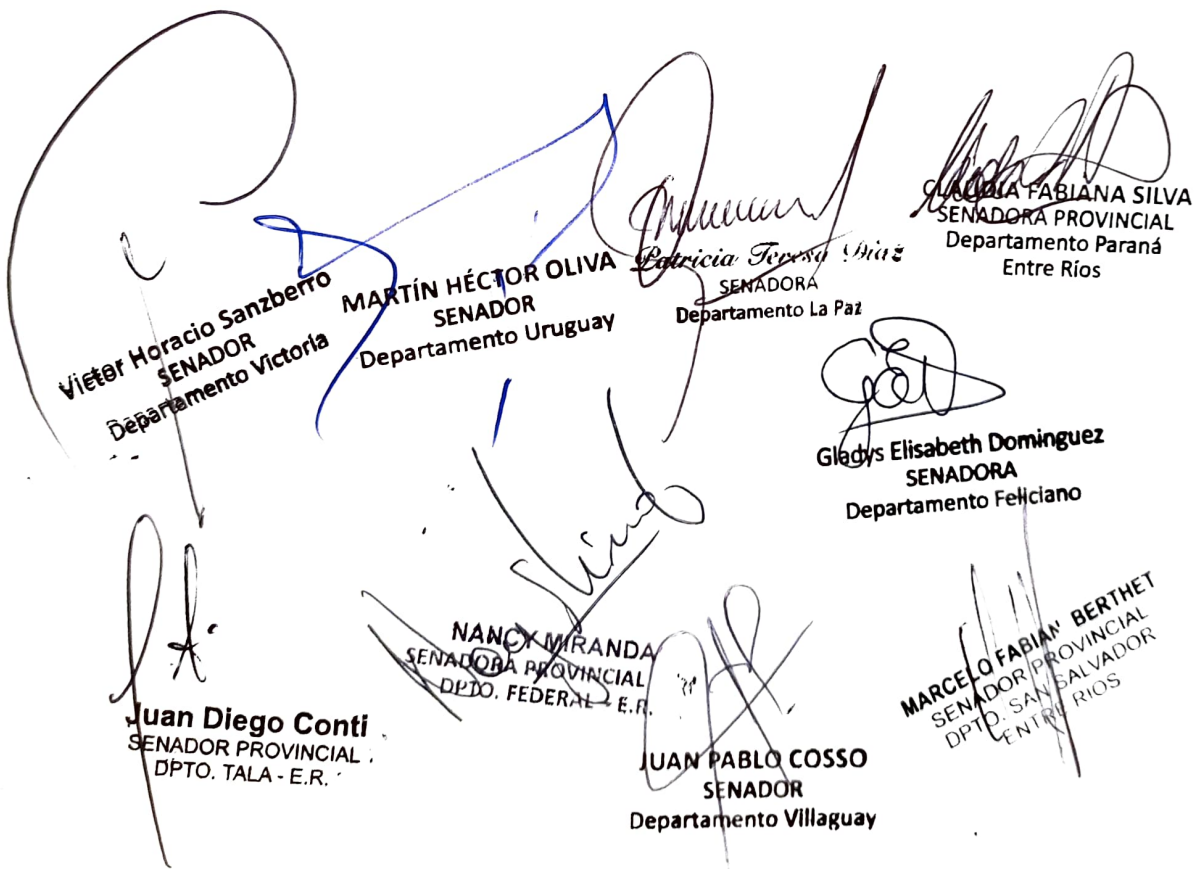 Victor Horacio Sanzberro
SENADOR
Departamento Victoria
MARTÍN HÉCTOR OLIVA
SENADOR
Departamento Uruguay
Patricia Teresa Díaz
SENADORA
Departamento La Paz
CLAUDIA FABIANA SILVA
SENADORA PROVINCIAL
Departamento Paraná
Entre Ríos
Gladys Elisabeth Dominguez
SENADORA
Departamento Feliciano
Juan Diego Conti
SENADOR PROVINCIAL
DPTO. TALA - E.R.
NANCY MIRANDA
SENADORA PROVINCIAL
DPTO. FEDERAL - E.R.
JUAN PABLO COSSO
SENADOR
Departamento Villaguay
MARCELO FABIAN BERTHET
SENADOR PROVINCIAL
DPTO. SAN SALVADOR
ENTRE RIOS